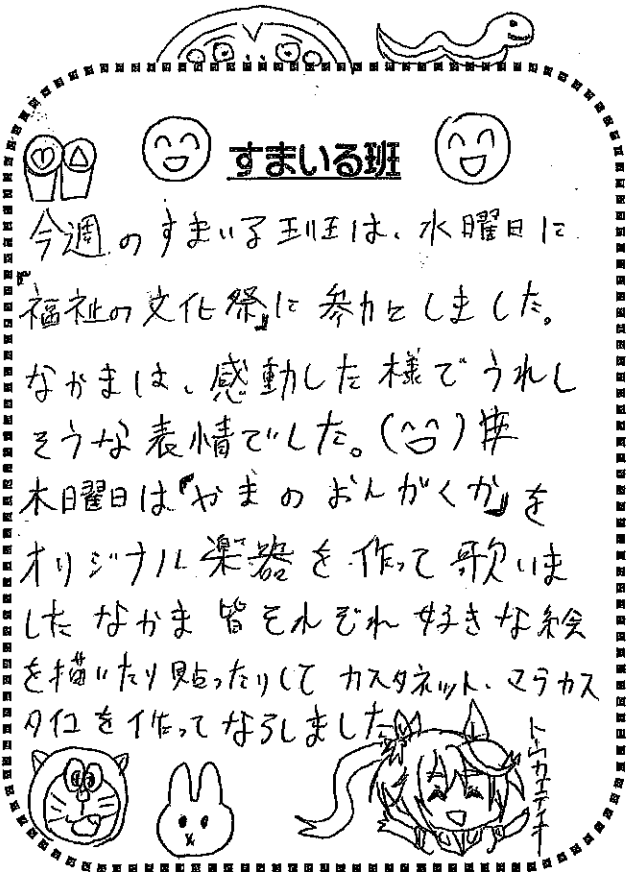 すまいる班
今週のすまいる班は、水曜日に
『福祉の文化祭』に参加としました。
なかまは、感動した様でうれし
そうな表情でした。(^○^)
木曜日は『やまのおんがくか』を
オリジナル楽器を作って歌いま
したなかま皆それぞれ好きな絵
を描いたり貼ったりして カスタネット、マラカス
タイコを作ってならしました
トウカイテイオー